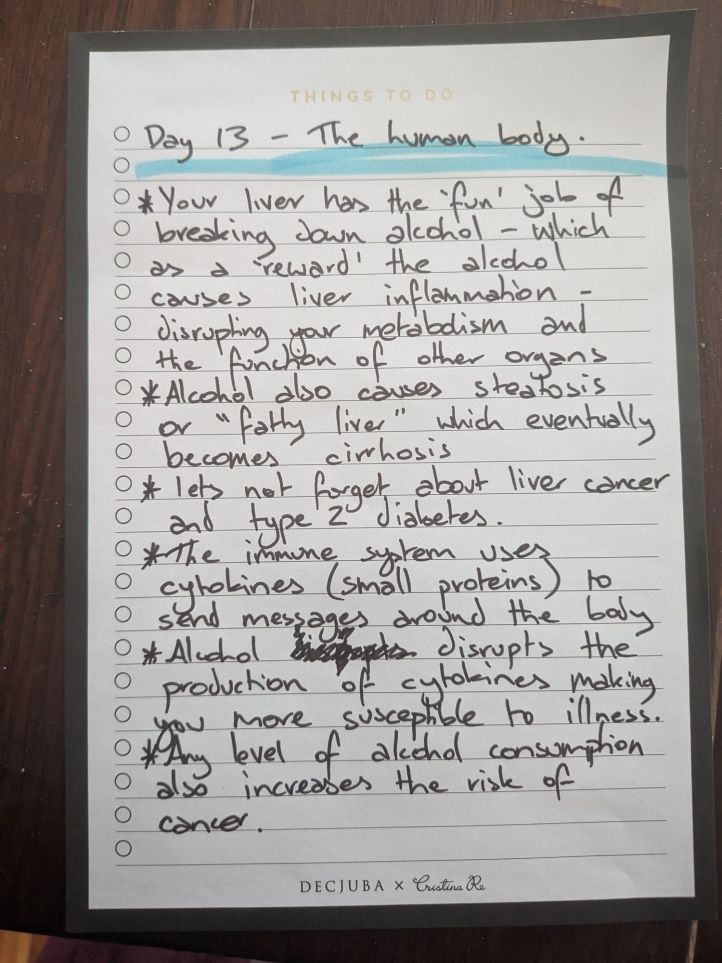 THINGS TO DO
Day 13 - The human body.
* Your liver has the 'fun' job of
breaking down alcohol - which
as a 'reward' the alcohol
causes liver inflammation -
disrupting your metabolism and
the function of other organs
* Alcohol also causes steatosis
or "fatty liver" which eventually
becomes cirrhosis
* lets not forget about liver cancer
and type 2 diabetes.
* The immune system uses
cytokines (small proteins) to
send messages around the body
* Alcohol disrupts the
production of cytokines making
you more susceptible to illness.
* Any level of alcohol consumption
also increases the risk of
cancer.
DECJUBA x Cristina Re